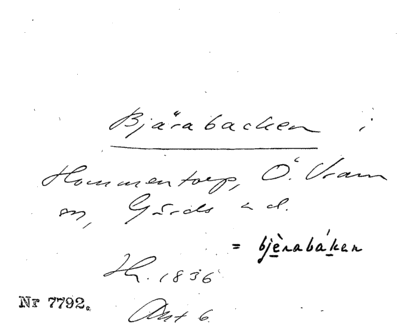 Bjärabacken i
Hommentorp, Ö. Vram
sn, Gärds hd.
= bjèrabáken
Hr. 1836
Akt 6.
Nr 7792.